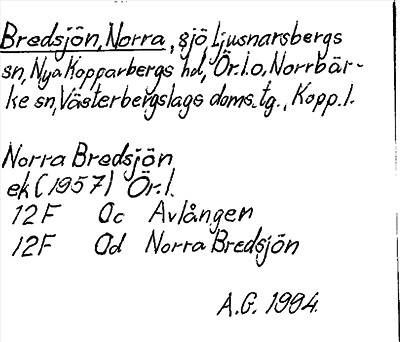 Bredsjön, Norra, sjö, Ljusnarsbergs
sn, Nya Kopparbergs hd, Ör.l.o. Norrbär-
ke sn, Västerbergslags doms.tg., Kopp.l.
Norra Bredsjön
ek (1957) Ör.l.
12F 0c Avlången
12F 0d Norra Bredsjön
A.G. 1994.